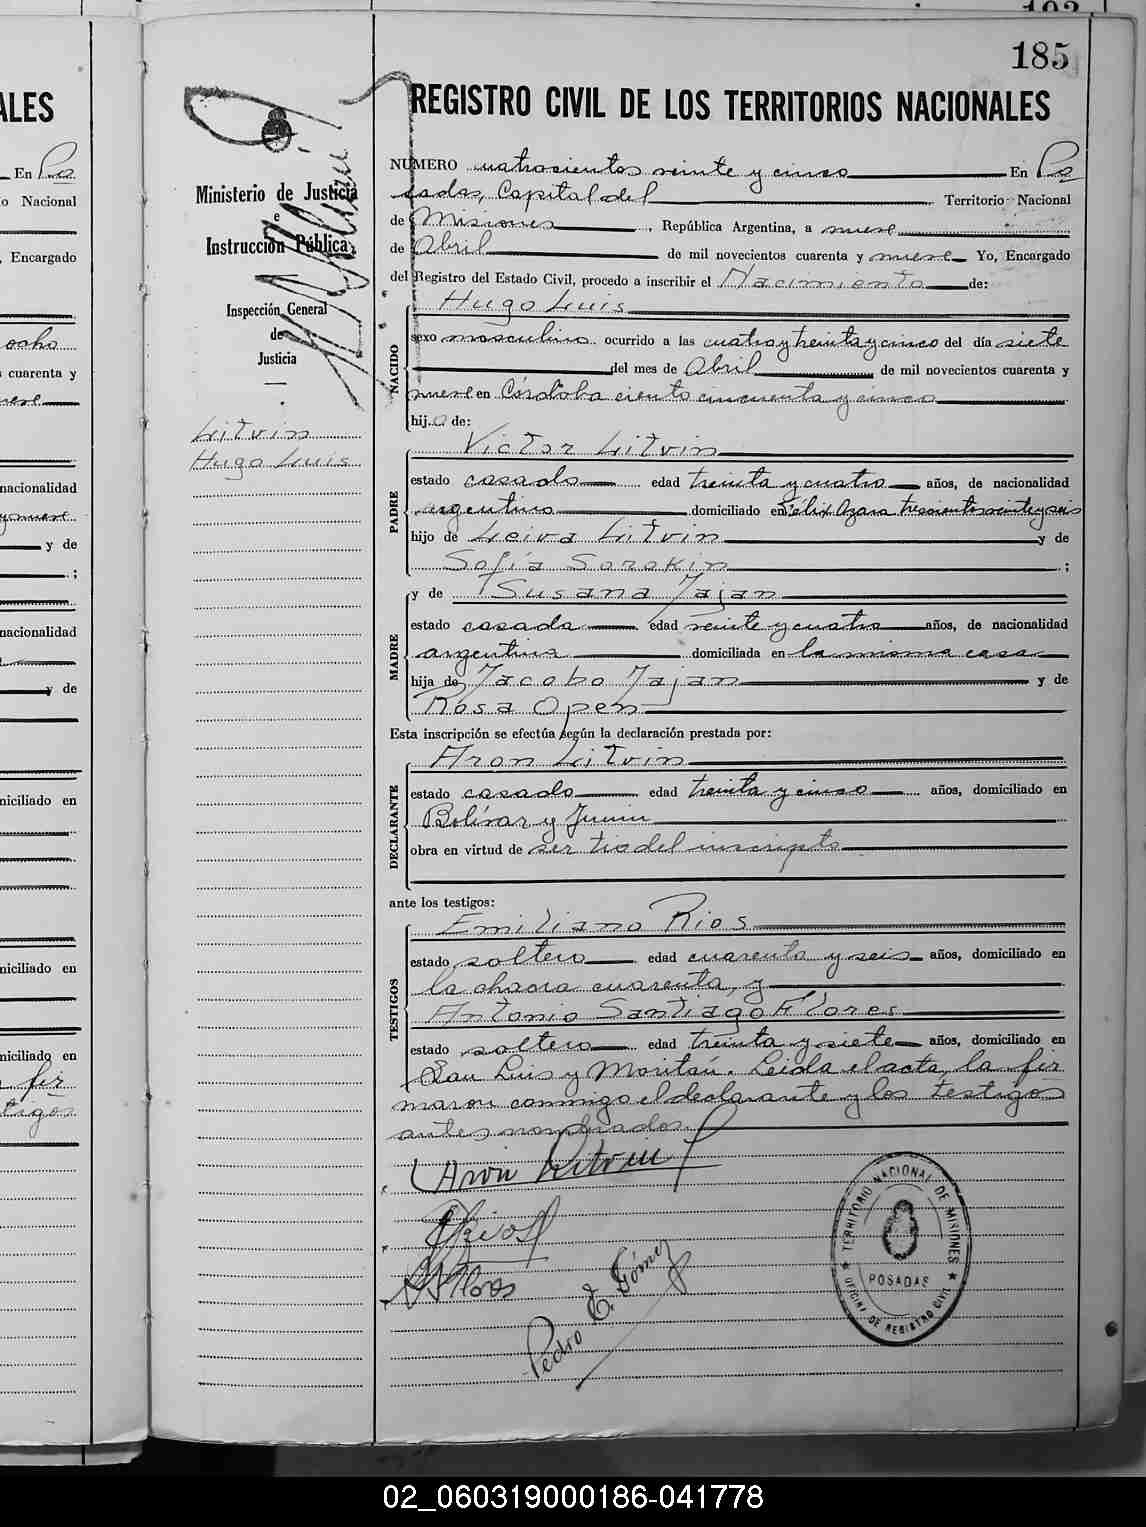 185
ALES
REGISTRO CIVIL DE LOS TERRITORIOS NACIONALES
En Po
o Nacional
, Encargado
ocho
s cuarenta y
nacionalidad
y de
;
nacionalidad
y de
niciliado en
niciliado en
niciliado en
fir
tigos
Ministerio de Justicia
e
Instrucción Pública
Inspección General
de
Justicia
Litvin
Hugo Luis
NUMERO cuatrocientos veinte y cinco En Po
sadas, Capital del Territorio Nacional
de Misiones, República Argentina, a nueve
de Abril de mil novecientos cuarenta y nueve Yo, Encargado
del Registro del Estado Civil, procedo a inscribir el Nacimiento de:
NACIDO
Hugo Luis
sexo masculino ocurrido a las cuatro y treinta y cinco del día siete
del mes de Abril de mil novecientos cuarenta y
nueve en Córdoba ciento cincuenta y cinco
hijo de:
PADRE
Victor Litvin
estado casado edad treinta y cuatro años, de nacionalidad
argentino domiciliado en Félix Azara trescientos veinte y seis
hijo de Leiva Litvin y de
Sofía Sorokin ;
MADRE
y de Susana Jajan
estado casada edad veinte y cuatro años, de nacionalidad
argentina domiciliada en la misma casa
hija de Jacobo Jajan y de
Rosa Open
Esta inscripción se efectúa según la declaración prestada por:
DECLARANTE
Aron Litvin
estado casado edad treinta y cinco años, domiciliado en
Bolívar y Junin
obra en virtud de ser tio del inscripto
ante los testigos:
TESTIGOS
Emiliano Rios
estado soltero edad cuarenta y seis años, domiciliado en
la chacra cuarenta, y
Antonio Santiago Flores
estado soltero edad treinta y siete años, domiciliado en
San Luis y Moritán. Leida el acta, la fir
maron conmigo el declarante y los testigos
antes nombrados.
Aron Litvin
Rios
Flores
Pedro E. Gómez
TERRITORIO NACIONAL DE MISIONES
POSADAS
OFICINA DE REGISTRO CIVIL
02_060319000186-041778